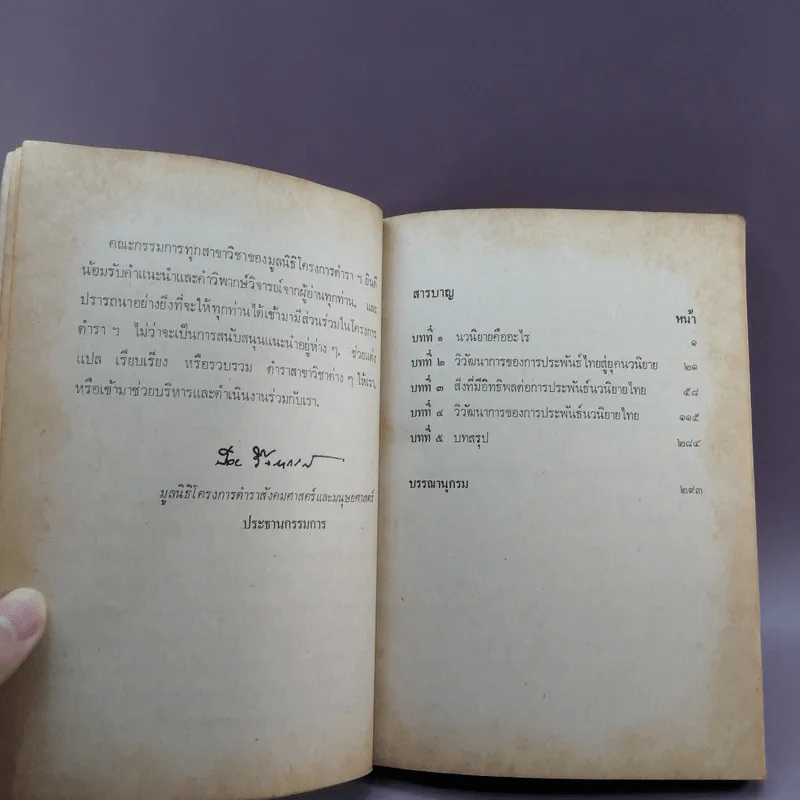 คณะกรรมการทุกสาขาวิชาของมูลนิธิโครงการตำรา ฯ ยินดี
น้อมรับคำแนะนำและคำวิพากษ์วิจารณ์จากผู้อ่านทุกท่าน, และ
ปรารถนาอย่างยิ่งที่จะให้ทุกท่านได้เข้ามามีส่วนร่วมในโครงการ
ตำรา ฯ ไม่ว่าจะเป็นการสนับสนุนแนะนำอยู่ห่าง ๆ, ช่วยแต่ง
แปล เรียบเรียง หรือรวบรวม ตำราสาขาวิชาต่าง ๆ ให้เรา,
หรือเข้ามาช่วยบริหารและดำเนินงานร่วมกับเรา.
มูลนิธิโครงการตำราสังคมศาสตร์และมนุษยศาสตร์
ประธานกรรมการ
สารบาญ
หน้า
บทที่ ๑ นวนิยายคืออะไร ๑
บทที่ ๒ วิวัฒนาการของการประพันธ์ไทยสู่ยุคนวนิยาย ๒๑
บทที่ ๓ สิ่งที่มีอิทธิพลต่อการประพันธ์นวนิยายไทย ๕๘
บทที่ ๔ วิวัฒนาการของการประพันธ์นวนิยายไทย ๑๑๕
บทที่ ๕ บทสรุป ๒๘๔
บรรณานุกรม ๒๙๓